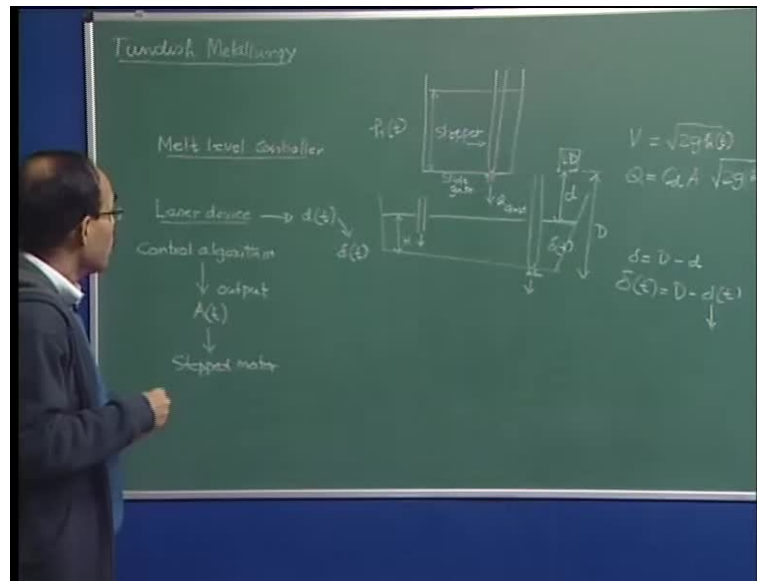 Tundish Metallurgy
Melt level controller
Laser device → d(t)
δ(t)
Control algorithm
↓ output
A(t)
↓
Stepped motor
h(t)
stopper
Slide
gate
Q
H
LD
d
δ(t)
D
V = √2gh(t)
Q = CdA √2gh
δ = D - d
δ(t) = D - d(t)